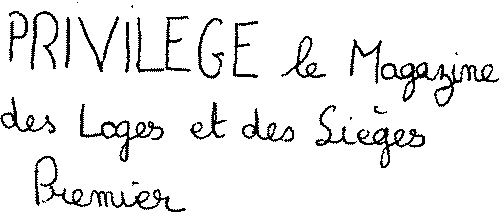 PRIVILEGE le Magazine
des Loges et des Sièges
Premier